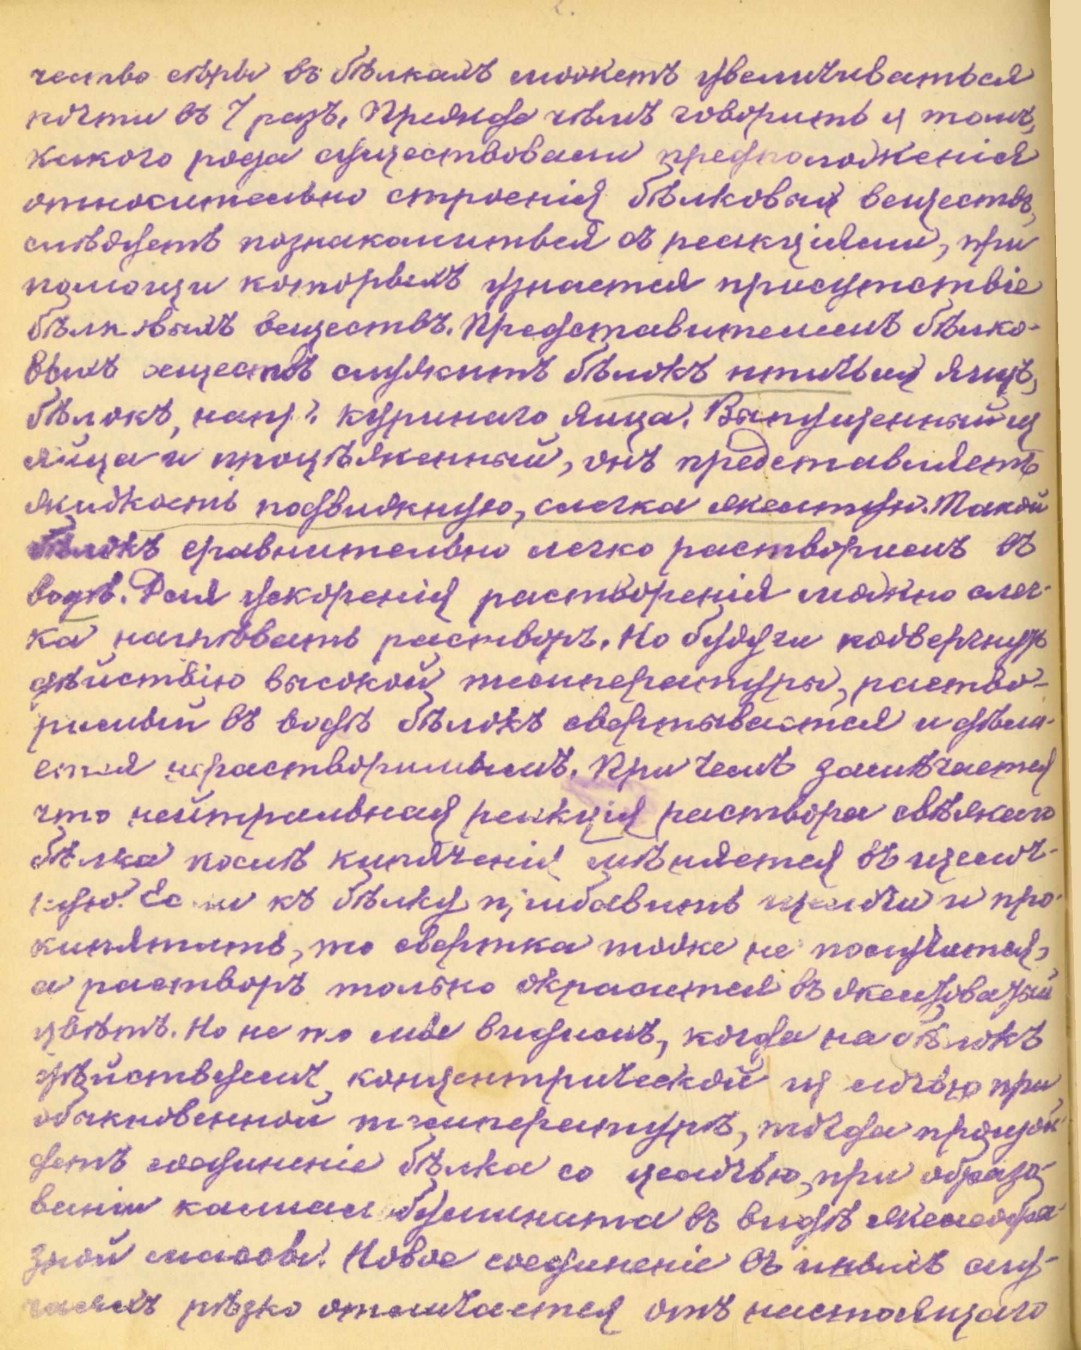 2.
чество сѣры въ бѣлкахъ можетъ увеличиваться
почти въ 7 разъ. Прежде чѣмъ говорить о томъ,
какого рода существовали предположенія
относительно строенія бѣлковых веществъ,
слѣдуетъ познакомиться съ реакціями, при
помощи которыхъ узнается присутствіе
бѣлковыхъ веществъ. Представителемъ бѣлко-
выхъ веществъ служитъ бѣлокъ птичьих яицъ,
бѣлокъ, напр. куринаго яица. Выпущенный из
яйца и процѣженный, онъ представляетъ
жидкость подвижную, слегка желтую. Такой
бѣлокъ сравнительно легко растворимъ въ
водѣ. Для ускоренія растворенія можно слег-
ка нагрѣвать растворъ. Но будучи подвергнут
дѣйствію высокой температуры, раство-
римый въ водѣ бѣлокъ свертывается и дѣла-
ется нерастворимымъ. При чемъ замѣчается
что нейтральная реакція раствора свѣжаго
бѣлка послѣ кипяченія мѣняется въ щелоч-
ную. Если къ бѣлку прибавить щелочи и про-
кипятить, то свертка тоже не получится,
а растворъ только окрасится въ желтоватый
цвѣтъ. Но не то мы видимъ, когда на бѣлокъ
дѣйствуемъ концентрической щелочью при
обыкновенной температурѣ, тогда произой-
детъ соединеніе бѣлка со щелочью, при образо-
ваніи калиальбумината въ видѣ желеобра-
зной массы. Новое соединеніе въ иныхъ слу-
чаяхъ рѣзко отличается отъ настоящаго